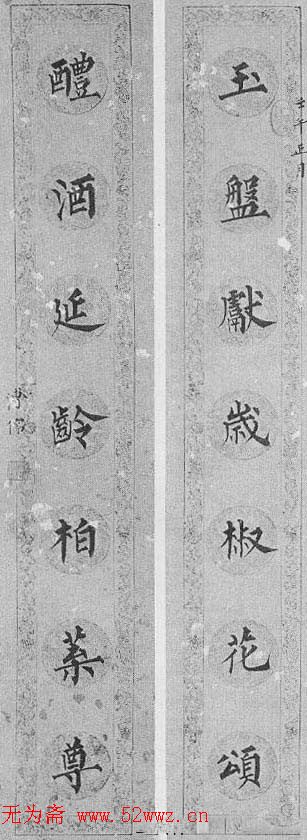 壬午正月
玉盤獻嵗椒花頌
醴酒延齡柏葉尊
无为斋 www.52wwz.cn